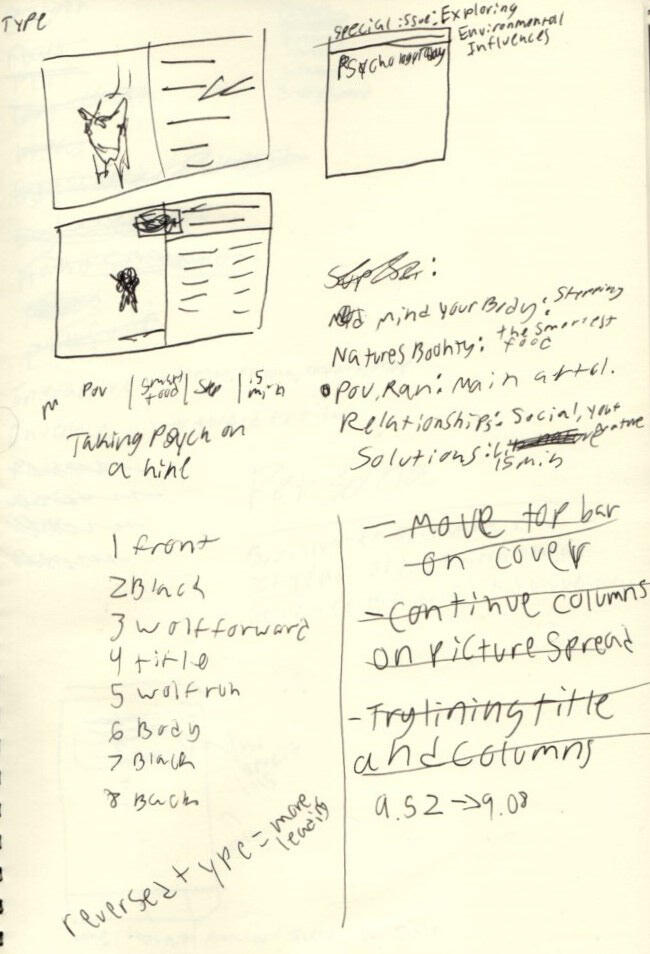 TYPE
special issue: Exploring
Environmental
Influences
PSychology
mind your Body: Stepping
Natures Bounty: the smartest
food
Pov, Ran: Main
Relationships: Social, your
Solutions:
15 min
M Pov | smart | | 15
food min
Taking Psych on
a hike
1 front
2 Black
3 wolf forward
4 title
5 wolf run
6 Body
7 Black
8 Back
reversed type = more
leading
- Move top bar
on cover
- Continue columns
on picture spread
- Try lining title
and columns
9.52 → 9.08